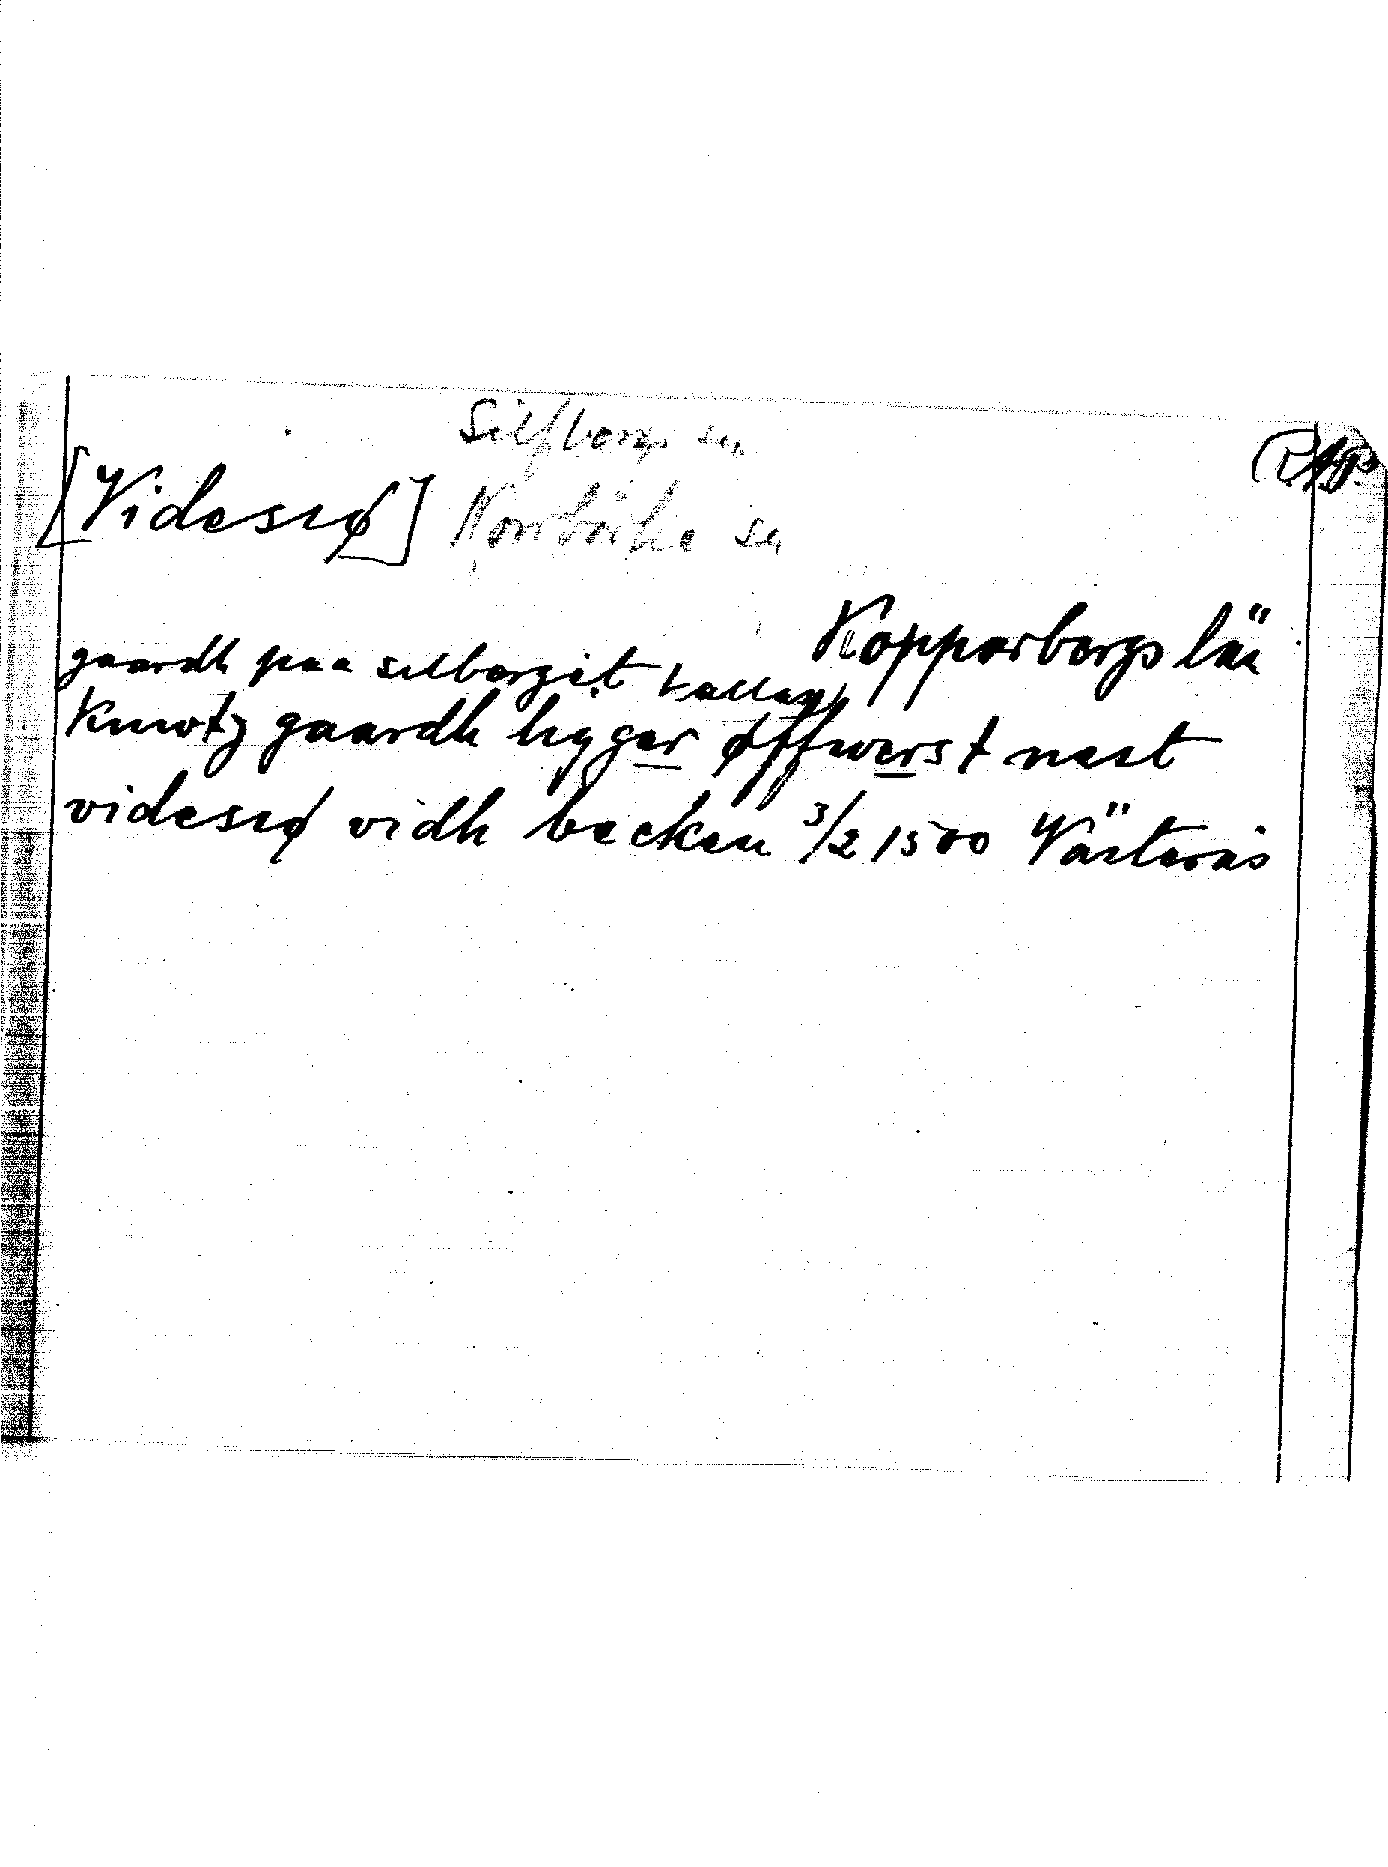 Silfbergs sn
[Videsiø] Norrbärke sn
Kopparbergs län
gaardh paa silbergit kallas
knwtz gaardh ligger øffwerst nest
videsiø vidh becken 3/2 1500 Västerås